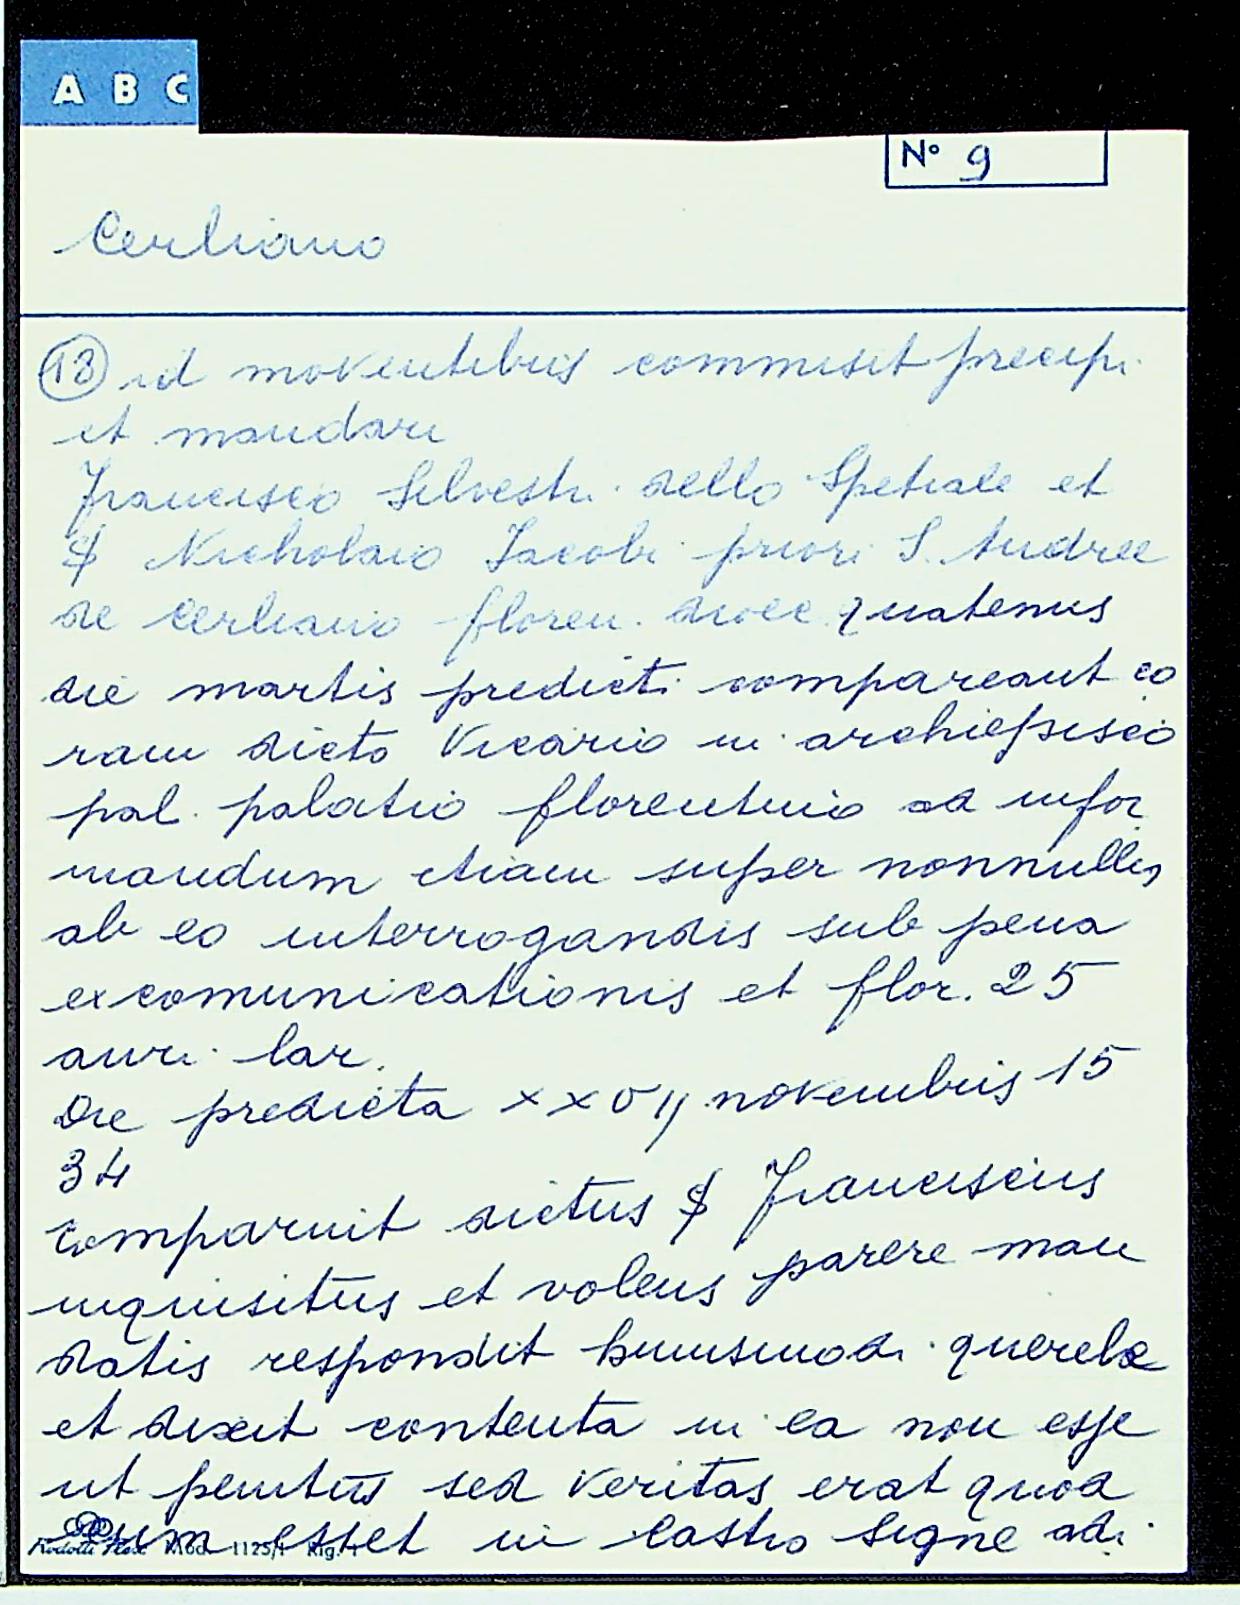 A B C
N° 9
Cerliano
13 id moventibus commisit precipi
et mandari
Francisco Silvestri dello Spetiale et
$ Nicholaio Jacobi priori S. Andree
de Cerliano floren. dioec quatenus
die martis predicti compareant co
ram dicto Vicario in archiepisco
pal. palatio florentino ad infor
mandum etiam super nonnullis
ab eo interrogandis sub pena
excomunicationis et flor. 25
auri lar.
Die predicta xxvij novembris 15
34
Comparuit dictus $ Franciscus
inquisitus et volens parere man
datis respondit huiusmodi querele
et dixit contenta in ea non esse
ut penitus sed veritas erat quod
cum esset in Castro Signe adi
Mod. 1125/1 Rig. 1